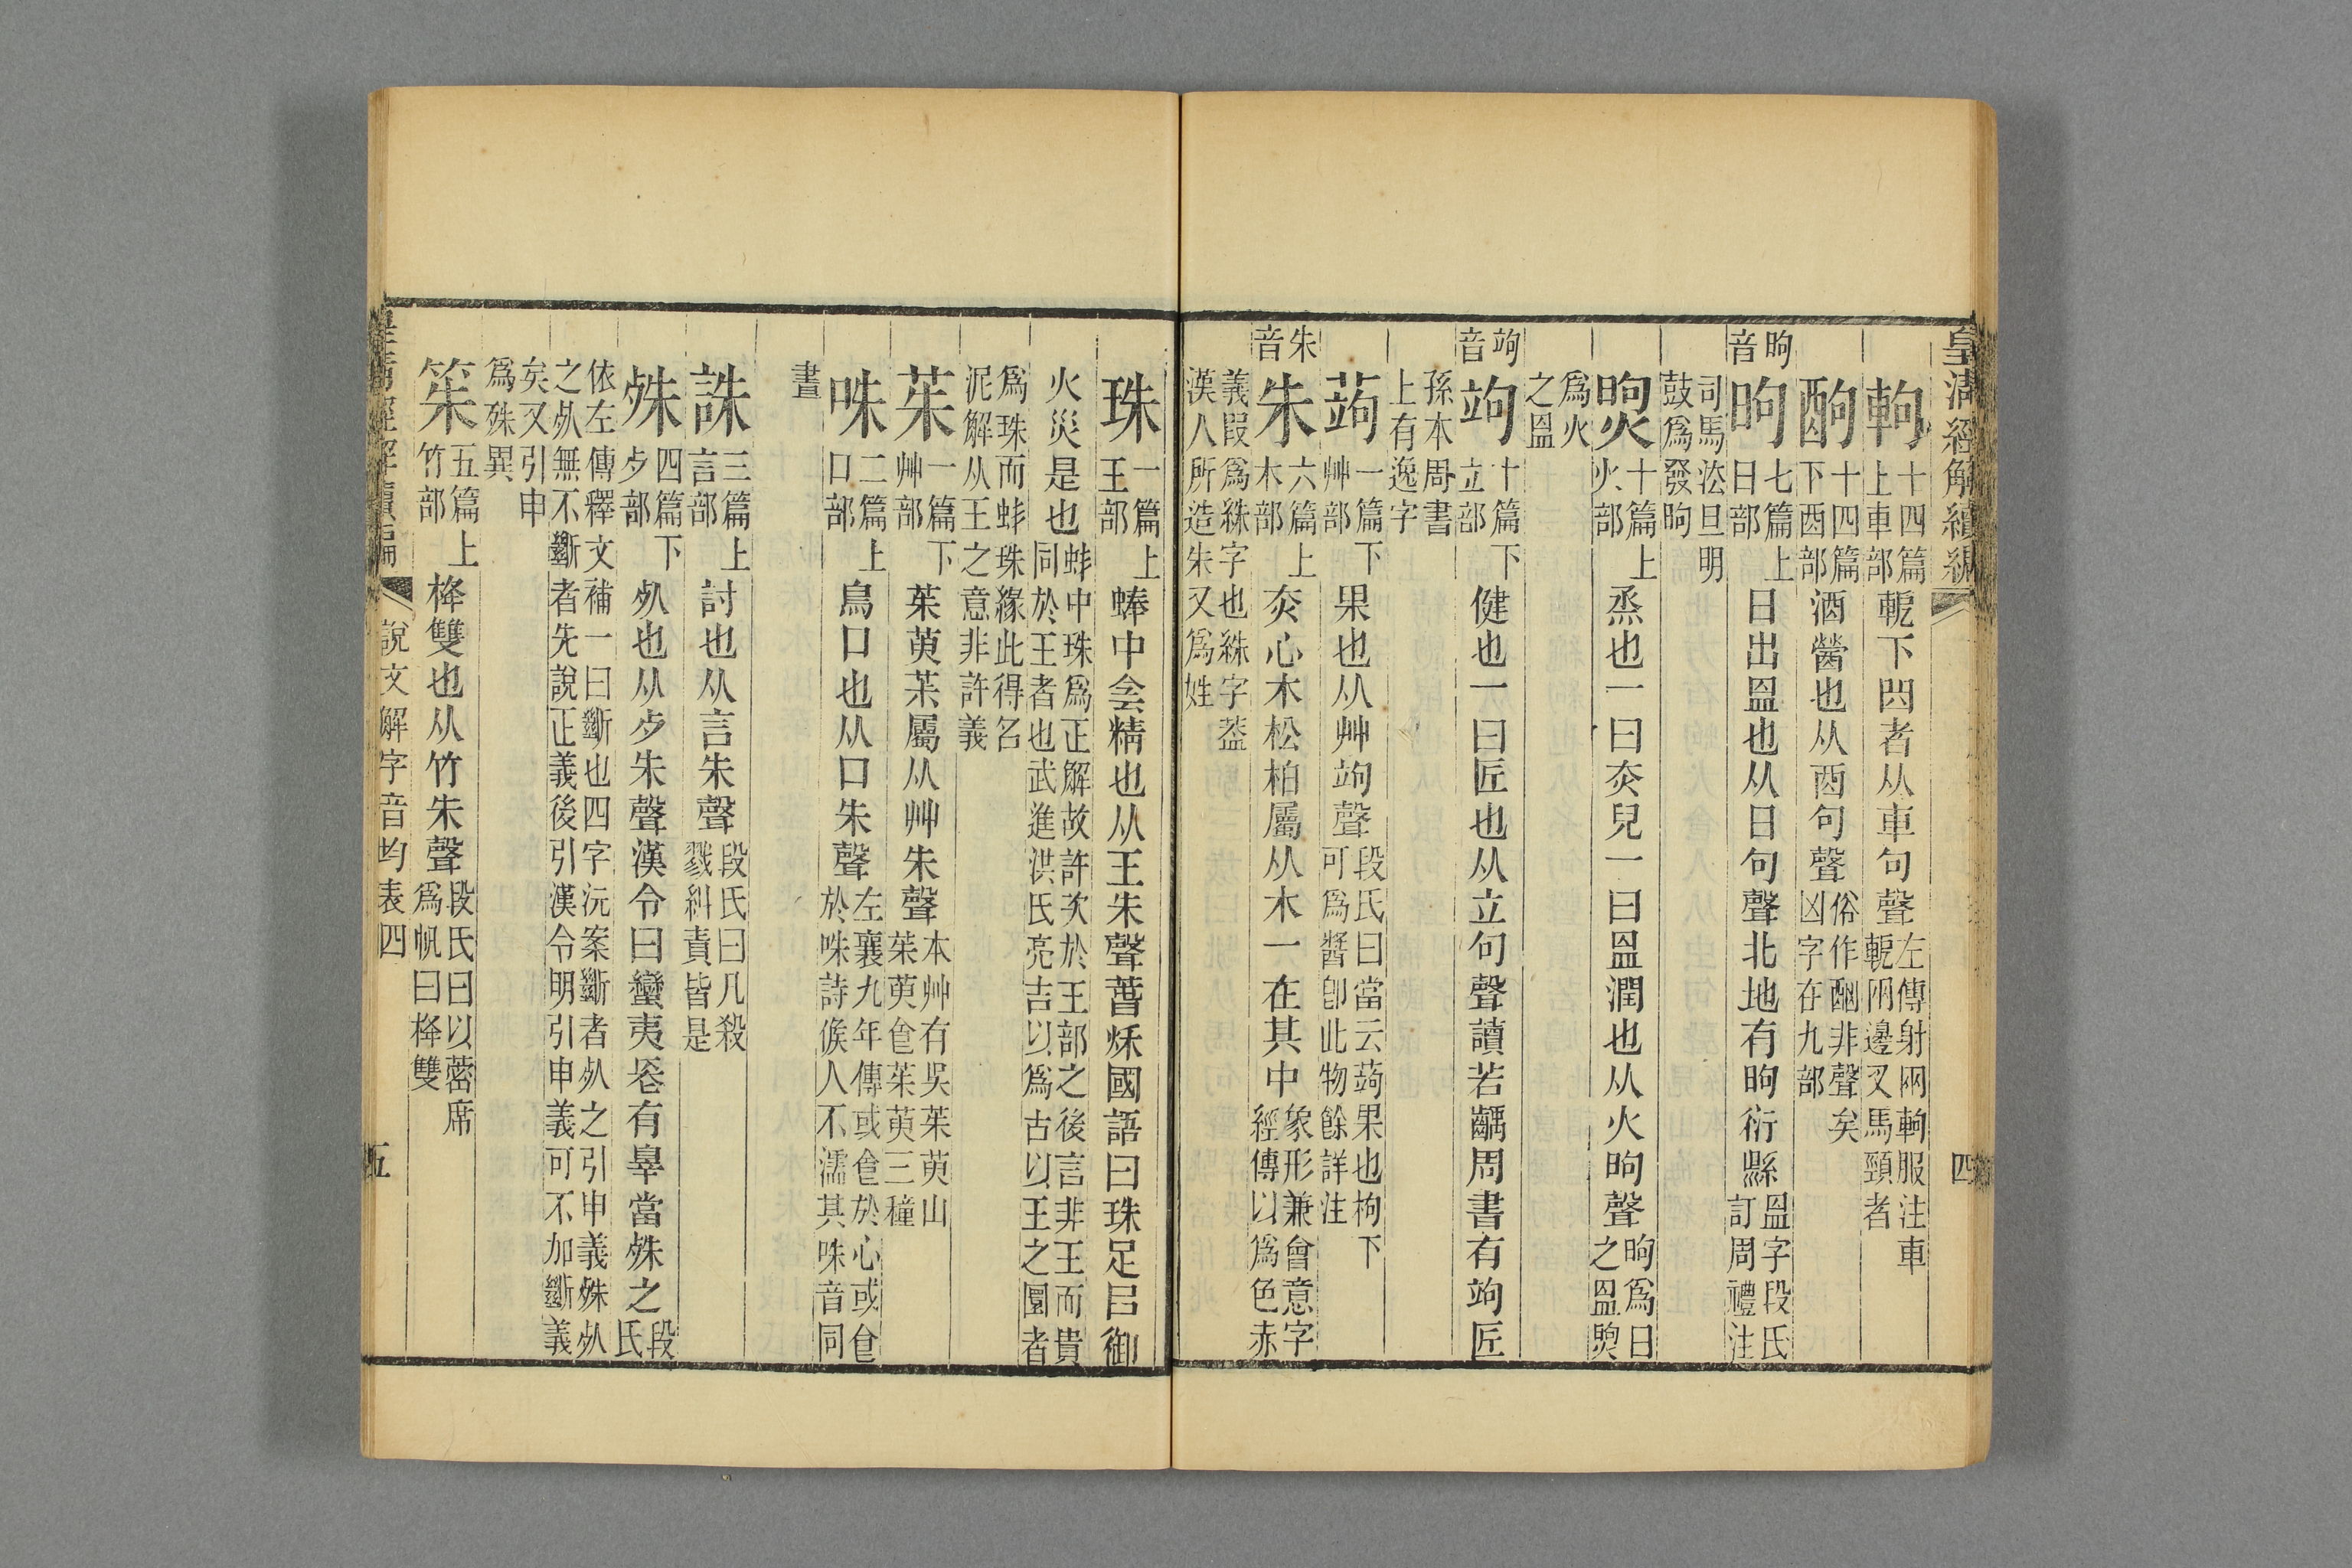 皇清經解續編
四
軥十四篇上車部軶下㘝者从車句聲左傳射兩軥服注車軶兩邊叉馬頸者
酌十四篇下酉部酒醟也从酉句聲俗作酗非聲矣凶字在九部
昫音
昫七篇上日部日出𥁕也从日句聲北地有昫衍縣𥁕字段氏訂周禮注
司馬法旦明鼓爲發昫
煦十篇上火部烝也一曰㶳皃一曰𥁕潤也从火昫聲昫爲日之𥁕煦
爲火之𥁕
竘音
竘十篇下立部健也一曰匠也从立句聲讀若齲周書有竘匠
孫本周書上有逸字
蒟一篇下艸部果也从艸竘聲段氏曰當云蒟果也枸下可爲醬卽此物餘詳注
朱音
朱六篇上木部㶳心木松柏屬从木一在其中象形兼會意字經傳以爲色赤
義叚爲絑字也絑字葢漢人所造朱又爲姓
珠一篇上王部蜯中侌精也从王朱聲萅秌國語曰珠足㠯御
火災是也蚌中珠爲正解故許次於王部之後言非王而貴同於王者也武進洪氏亮吉以爲古以王之圜者
爲珠而蚌珠緣此得名泥解从王之意非許義
茱一篇下艸部茱萸茮屬从艸朱聲本艸有吳茱萸山茱萸食茱萸三種
咮二篇上口部鳥口也从口朱聲左襄九年傳或食於心或食於咮詩候人不濡其咮音同
晝
誅三篇上言部討也从言朱聲段氏曰凡殺戮糾責皆是
殊四篇下歺部𣦸也从歺朱聲漢令曰蠻夷𨱗有辠當殊之段氏
依左傳釋文補一曰斷也四字沅案斷者𣦸之引申義殊𣦸之𣦸無不斷者先說正義後引漢令明引申義可不加斷義
矣又引申爲殊異
笨五篇上竹部栙雙也从竹朱聲段氏曰以蒻席爲帆曰栙雙
皇清經解續編
說文解字音均表四
五